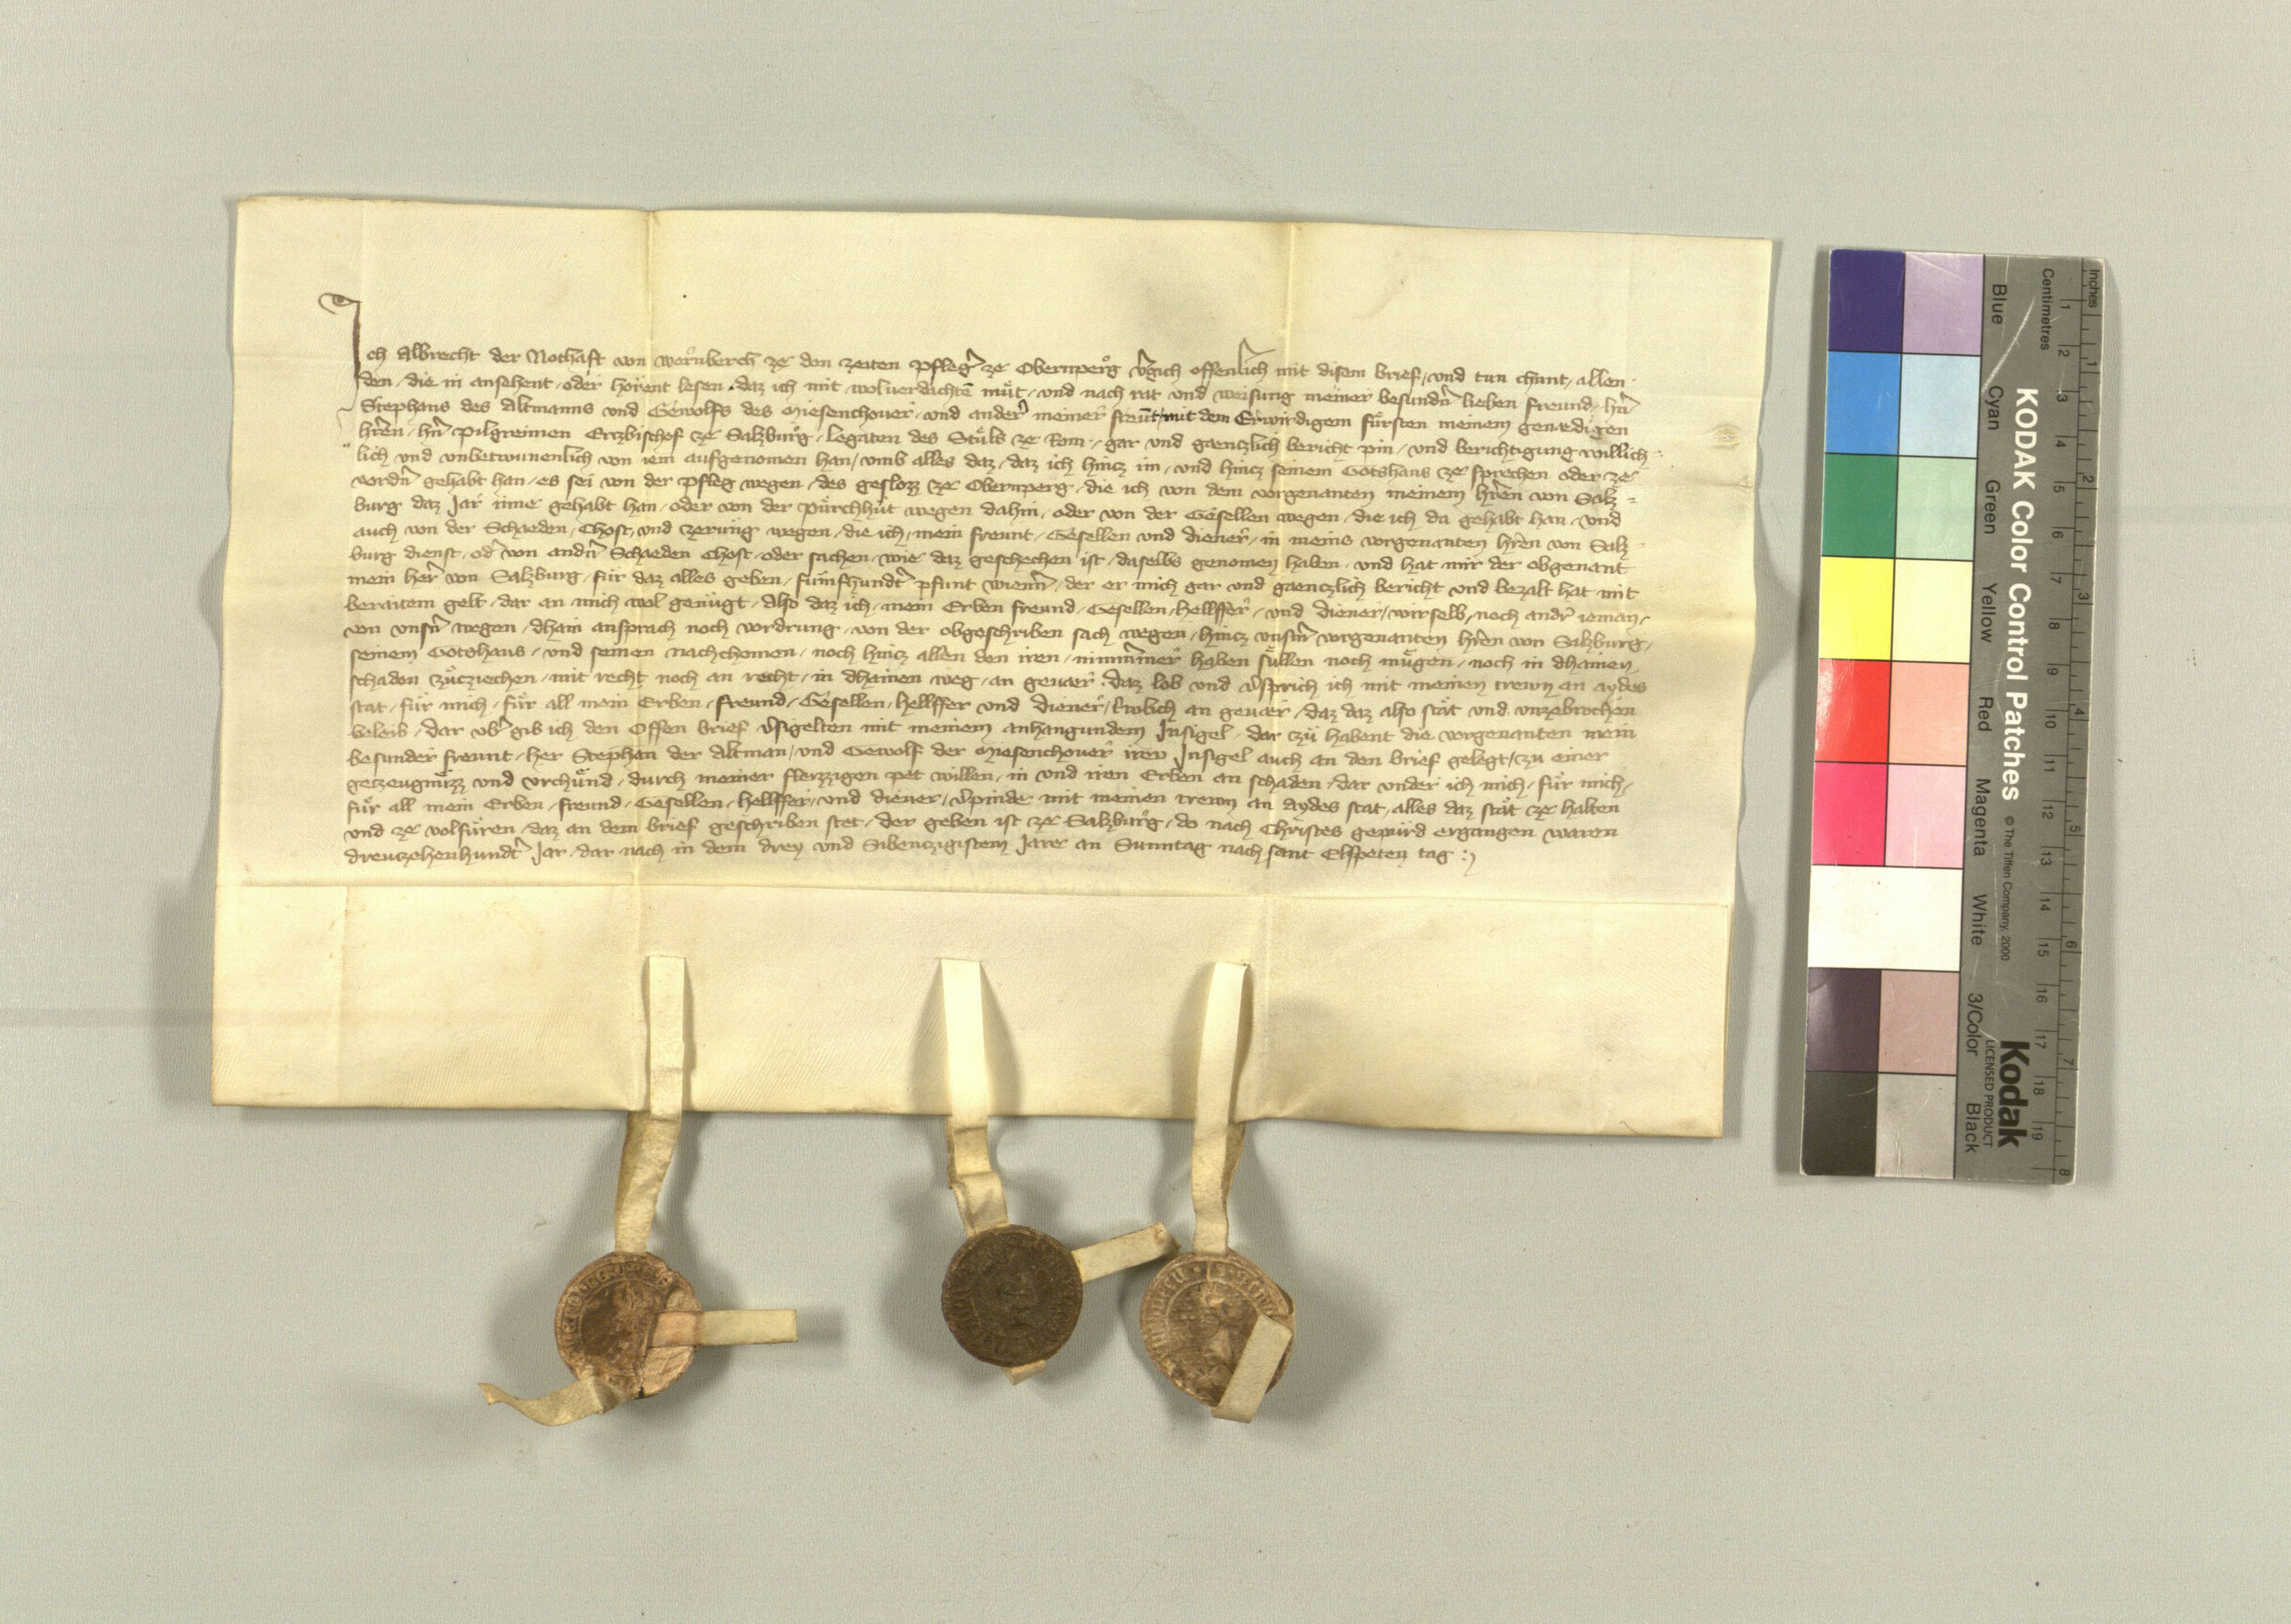 Ich Albrecht der Nothaft von Wernberch ze den zeiten Pfleger ze Obernperg v̂gich offenlich mit disem brief / und tun chunt / allen
den / die in ansehent / oder hörent lesen / daz ich mit wolverdachtē müt / und nach rat und weisung meiner besundn̂ lieben freund / hn̂
Stephans des Altmanns und Gewolfs des Niesenchover / undander meiner freūt / mit dem Erwirdigem fürsten meinem genædigen
hren̂ / hn̂ pilgreimen Erczbischof ze Salzburg / Legaten des Stüls ze Rom / gar und gaenczlich bericht pin / und berichtigung willich-
lich und unbetwunenlich von iem aufgenomen han / umb alles daz / daz ich hincz im / und hincz seinem Gotshaus ze sprechen oder ze
vordn̂ gehabt han / es sei von der pfleg wegen / des geslozz ze Obernperg / die ich von dem vorgenanten meinem hren̂ von Salz=
burg daz Jar inne gehabt han / oder von der pürchhüt wegen dahin / oder von der Gesellen wegen / die ich da gehabt han / und
auch von der Schaeden / Chost / und zerung wegen / die ich / mein freunt / Gesellen und diener / in meins vorgenanten hren̂ von Salz
burg dienst / od̂ von andn̂ Schaeden Chost / oder sachen / wie daz geschechen ist / daselbs genomen haben / und hat mir der obgenant
mein her̂ von Salzburg / für daz alles geben / fümfhundt̂ pfunt wienn̂ / der er mich gar und gaenczlich bericht und bezalt hat mit
beraitem gelt / dar an mich wol genügt / Also daz ich / mein Erben freund / Gesellen / hellffer / und diener / wir selb / noch andr̂ ieman /
von unsn̂ wegen / dhain ansprach noch vordrung / von der obgeschriben sach wegen / hincz unsm̂ vorgenanten hren̂ von Salzburg /
seinem Gotshaus / und seinen nachchomen / noch hincz allen den iren / nimm̂mer haben süllen noch mügen / noch in dhainen
schaden zücziechen / mit recht noch an recht / in dhainen weg / an gevaer / daz lob und v̂sprich ich mit meinen trewn an aydes
stat / für mich / für all mein Erben / freund / Gesellen / hellffer und diener / an gevaer / daz daz also stät und unzebrochen
beleib / dar vb̂ gib ich den Offen brief v̂sigelten mit meinem anhangundem Insigel / dar zü habent die vorgenanten mein
besunder freunt / her Stephen der Altman / und Gewolf der Niesenchover irew Insigel auch an den brief gelegt / czu einer
gezeugnüzz und urchünd / durch meiner fleizzigen pet willen / in und iren Erben an schaden / dar under ich mich / für mich /
für all mein Erben / freund / Gesellen / hellffer / und diener / v̂pinde mit meinen trewn an aydes stat / alles daz stät ze halten
und ze volfüren / daz an dem brief geschriben stet / der geben ist ze Salzburg / do nach Christes gepürd ergangen waren
dreuczehenhundt̂ Jar / dar nach in dem drey und Sibenczigistem Jare an Sunntag nach sant Elspeten tag :)
KODAK Color Control Patches © The Tiffen Company, 2000 Kodak
LICENSED PRODUCT
Blue Cyan Green Yellow Red Magenta White 3/Color Black
Centimetres 1 2 3 4 5 6 7 8 9 10 11 12 13 14 15 16 17 18 19
Inches 1 2 3 4 5 6 7 8